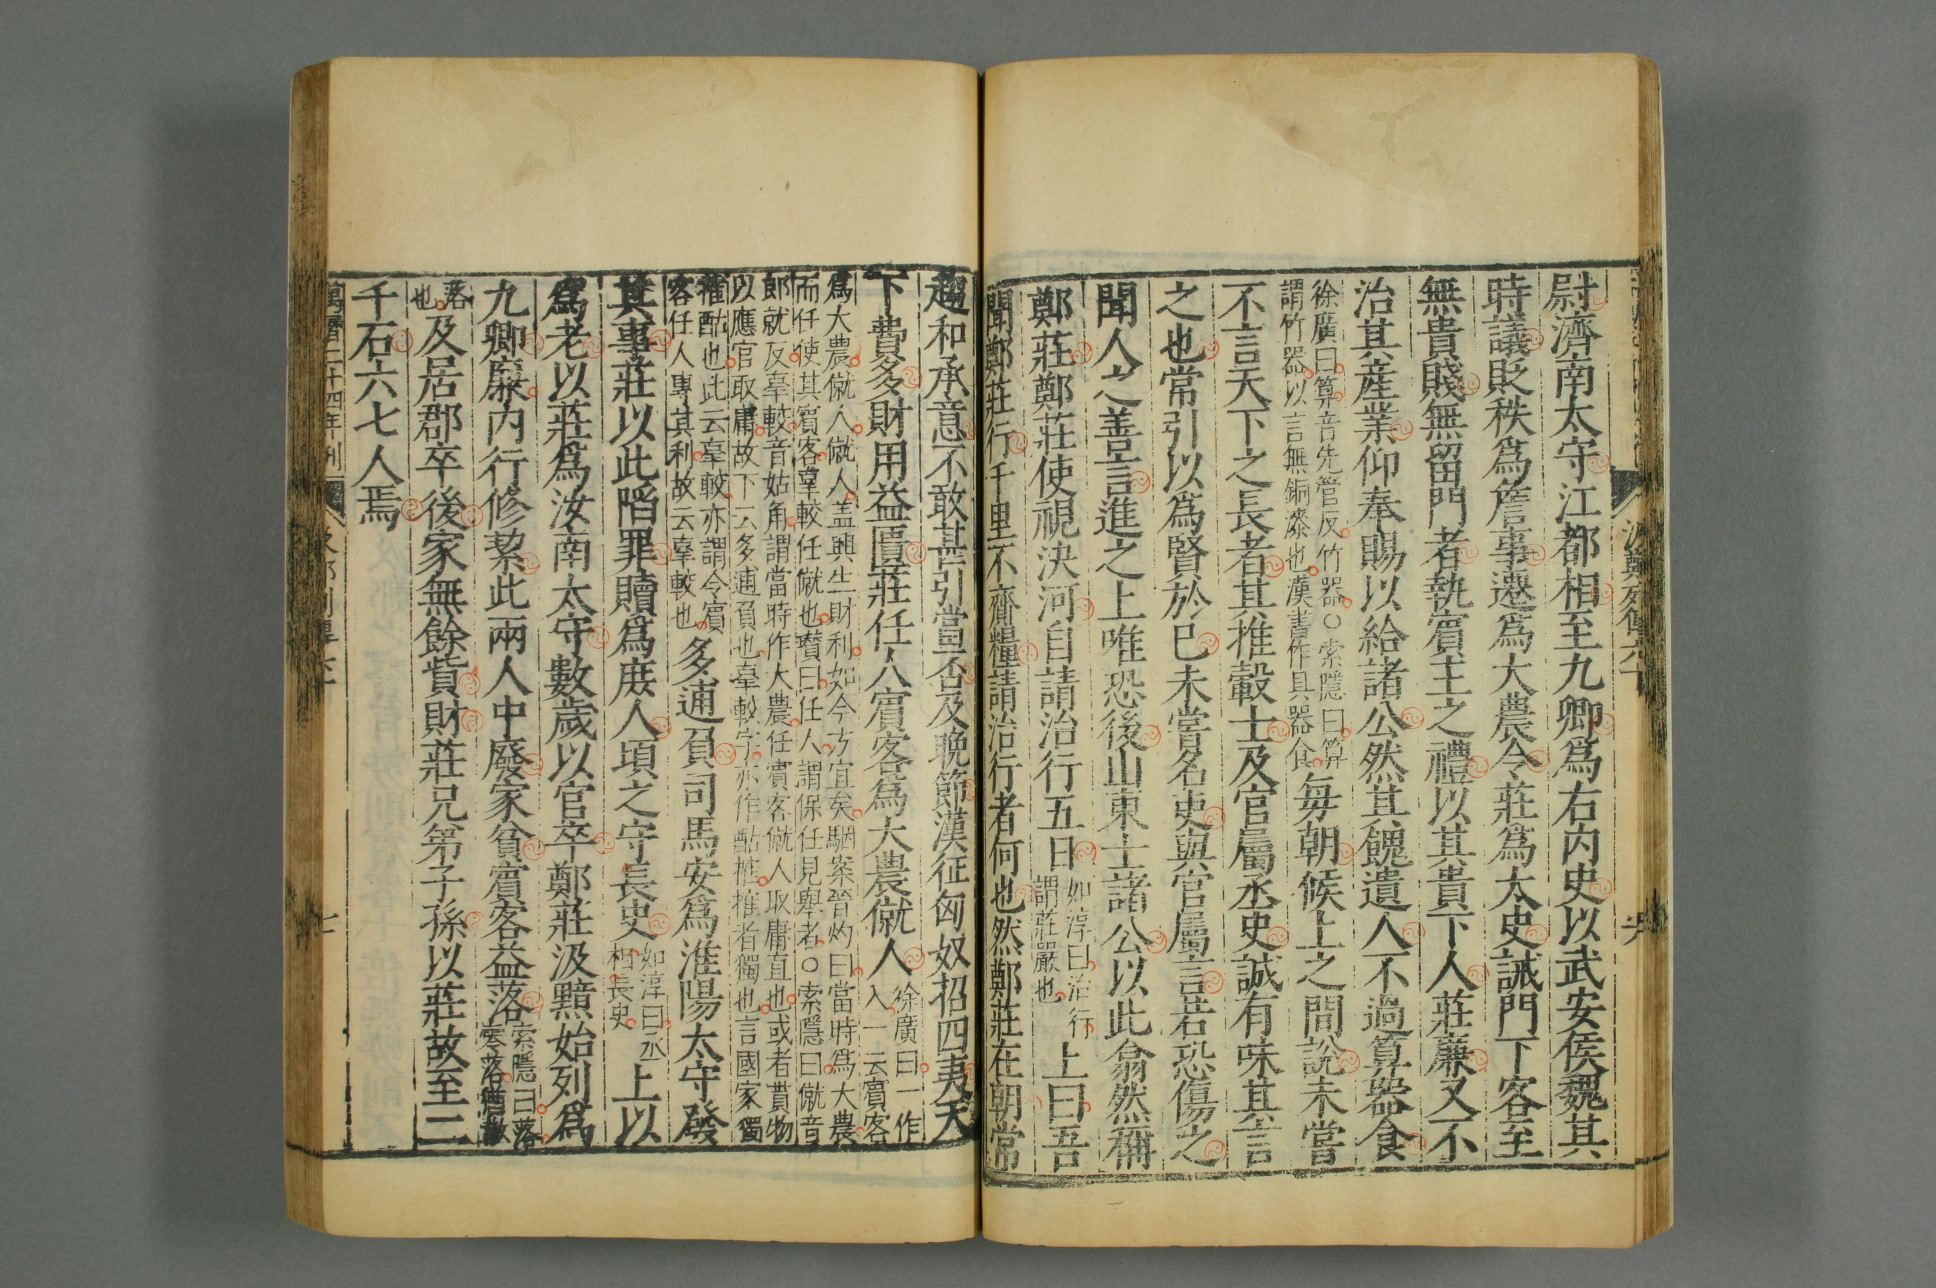 汲鄭列傳六十
六
尉濟南太守江都相至九卿爲右内史以武安侯魏其
時議貶秩爲詹事遷爲大農令莊爲太史誡門下客至
無貴賤無留門者執賓主之禮以其貴下人莊廉又不
治其産業仰奉賜以給諸公然其餽遺人不過算器食
徐廣曰算音先管反竹器○索隱曰算
謂竹器以言無銅漆也漢書作具器食
毎朝候上之間說未嘗
不言天下之長者其推轂士及官屬丞史誠有味其言
之也常引以爲賢於已未嘗名吏與官屬言若恐傷之
聞人之善言進之上唯恐後山東士諸公以此翕然稱
鄭莊鄭莊使視決河自請治行五日
如淳曰治行
謂莊嚴也
上曰吾
聞鄭莊行千里不齎糧請治行者何也然鄭莊在朝常
趨和承意不敢甚引當否及晚節漢征匈奴招四夷天
下費多財用益匱莊任人賓客爲大農僦人
徐廣曰一作
入一云賓客
爲大農僦人僦人蓋興生財利如今方宜矣駰案晉灼曰當時爲大農
而任使其賓客辜較任僦也瓚曰任人謂保任見舉者○索隱曰僦音
郎就反辜較音姑角謂當時作大農任賓客僦人取庸直也或者貰物
以應官取庸故下云多逋負也辜較字亦作酤榷榷者獨也言國家獨
榷酤也此云辜較亦謂令賓
客任人專其利故云辜較也
多逋負司馬安爲淮陽太守發
其事莊以此陷罪贖爲庶人頃之守長史
如淳曰丞
相長史
上以
爲老以莊爲汝南太守數歲以官卒鄭莊汲黯始列爲
九卿廉内行修絜此兩人中廢家貧賓客益落
索隱曰落
零落猶散
落
也
及居郡卒後家無餘貲財莊兄弟子孫以莊故至二
千石六七人焉
萬曆二十四年刊
汲鄭列傳六十
七